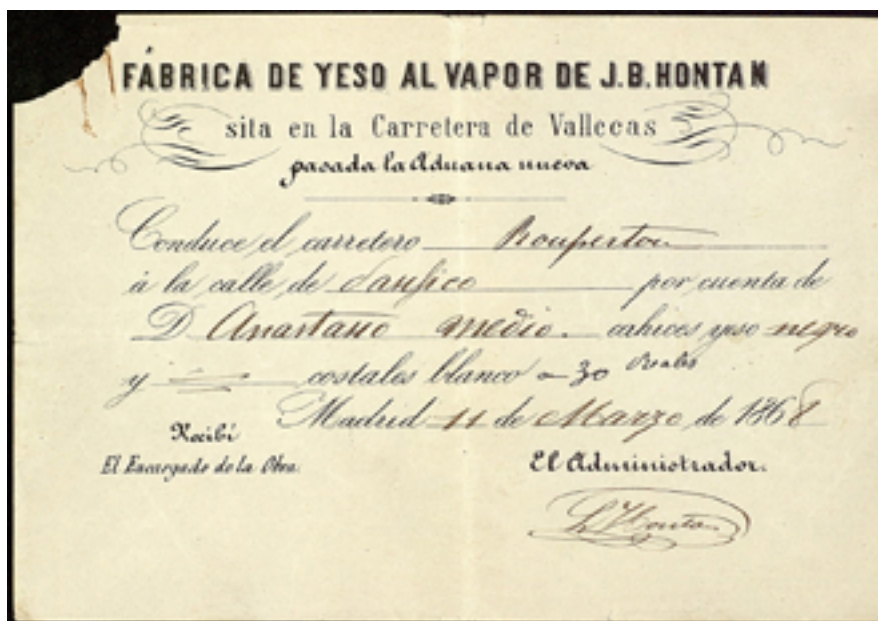 FÁBRICA DE YESO AL VAPOR DE J.B.HONTAN
sita en la Carretera de Vallecas
pasada la Aduana nueva
Conduce el carretero
á la calle de por cuenta de
D Anastasio medio. cahices yeso negro
y costales blanco a 30 Reales
Madrid 11 de Marzo de 1868
Recibí
El Encargado de la Obra. El Administrador.